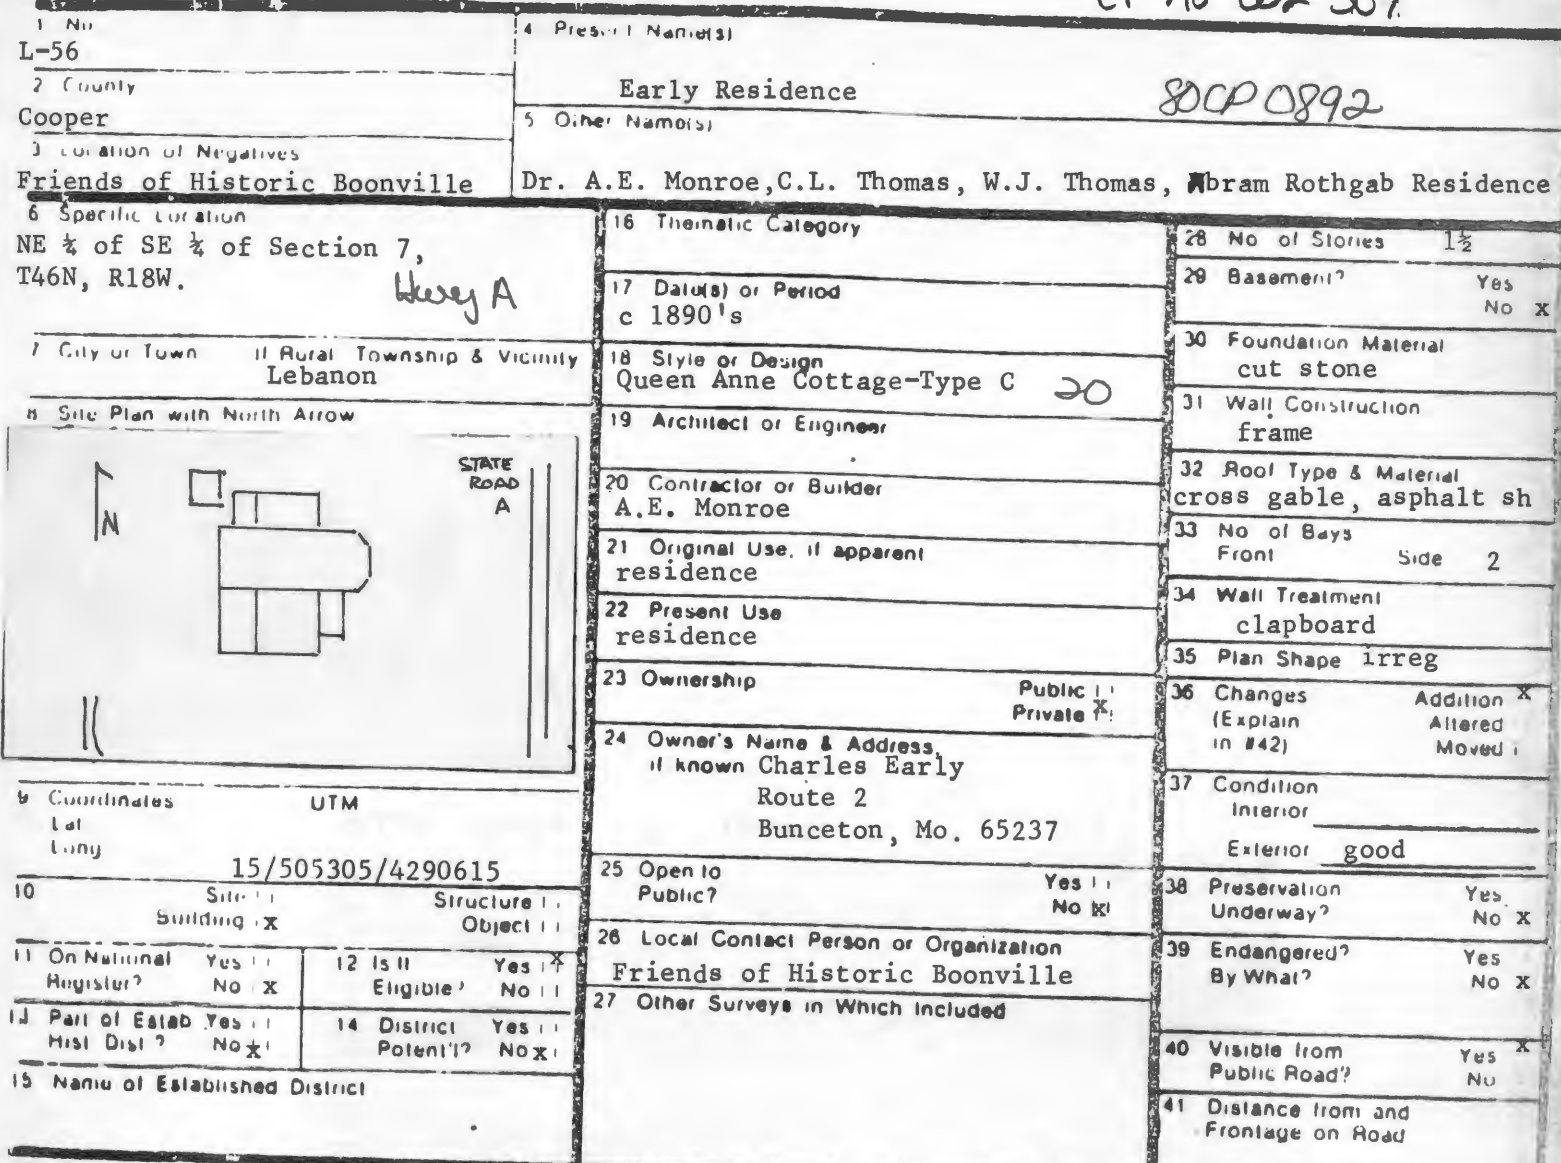 1 No
L-56
2 County
Cooper
3 Location of Negatives
Friends of Historic Boonville
4 Present Name(s)
Early Residence
80CP0892
5 Other Name(s)
Dr. A.E. Monroe,C.L. Thomas, W.J. Thomas, Abram Rothgab Residence
6 Specific Location
NE ¼ of SE ¼ of Section 7,
T46N, R18W.
Hwy A
7 City or Town If Rural Township & Vicinity
Lebanon
8 Site Plan with North Arrow
N
STATE
ROAD
A
9 Coordinates UTM
Lat
Long
15/505305/4290615
10 Site Structure
Building x Object
11 On National Yes
Register? No x
12 Is It Yes x
Eligible? No
13 Part of Estab Yes
Hist Dist? No x
14 District Yes
Potent'l? No x
15 Name of Established District
16 Thematic Category
17 Date(s) or Period
c 1890's
18 Style or Design
Queen Anne Cottage-Type C 20
19 Architect or Engineer
20 Contractor or Builder
A.E. Monroe
21 Original Use, if apparent
residence
22 Present Use
residence
23 Ownership Public
Private x
24 Owner's Name & Address,
if known Charles Early
Route 2
Bunceton, Mo. 65237
25 Open to Yes
Public? No x
26 Local Contact Person or Organization
Friends of Historic Boonville
27 Other Surveys in Which Included
28 No of Stories 1½
29 Basement? Yes
No x
30 Foundation Material
cut stone
31 Wall Construction
frame
32 Roof Type & Material
cross gable, asphalt sh
33 No of Bays
Front Side 2
34 Wall Treatment
clapboard
35 Plan Shape irreg
36 Changes Addition x
(Explain Altered
in #42) Moved
37 Condition
Interior
Exterior good
38 Preservation Yes
Underway? No x
39 Endangered? Yes
By What? No x
40 Visible from Yes x
Public Road? No
41 Distance from and
Frontage on Road